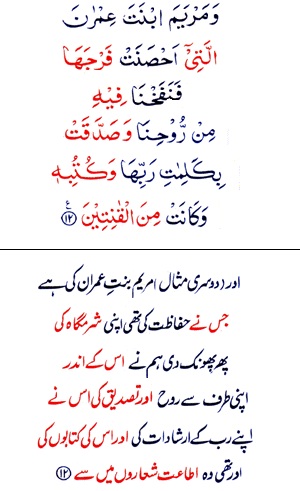 وَمَرْيَمَ ابْنَتَ عِمْرٰنَ
الَّتِیْۤ اَحْصَنَتْ فَرْجَهَا
فَنَفَخْنَا فِیْهِ
مِنْ رُّوْحِنَا وَصَدَّقَتْ
بِكَلِمٰتِ رَبِّهَا وَكُتُبِهٖ
وَكَانَتْ مِنَ الْقٰنِتِیْنَ ﴿۱۲﴾ ع
اور (دوسری مثال) مریم بنتِ عمران کی ہے
جس نے حفاظت کی تھی اپنی شرمگاہ کی
پھر پھونک دی ہم نے اس کے اندر
اپنی طرف سے روح اور تصدیق کی اس نے
اپنے رب کے ارشادات کی اور اس کی کتابوں کی
اور تھی وہ اطاعت شعاروں میں سے ﴿۱۲﴾